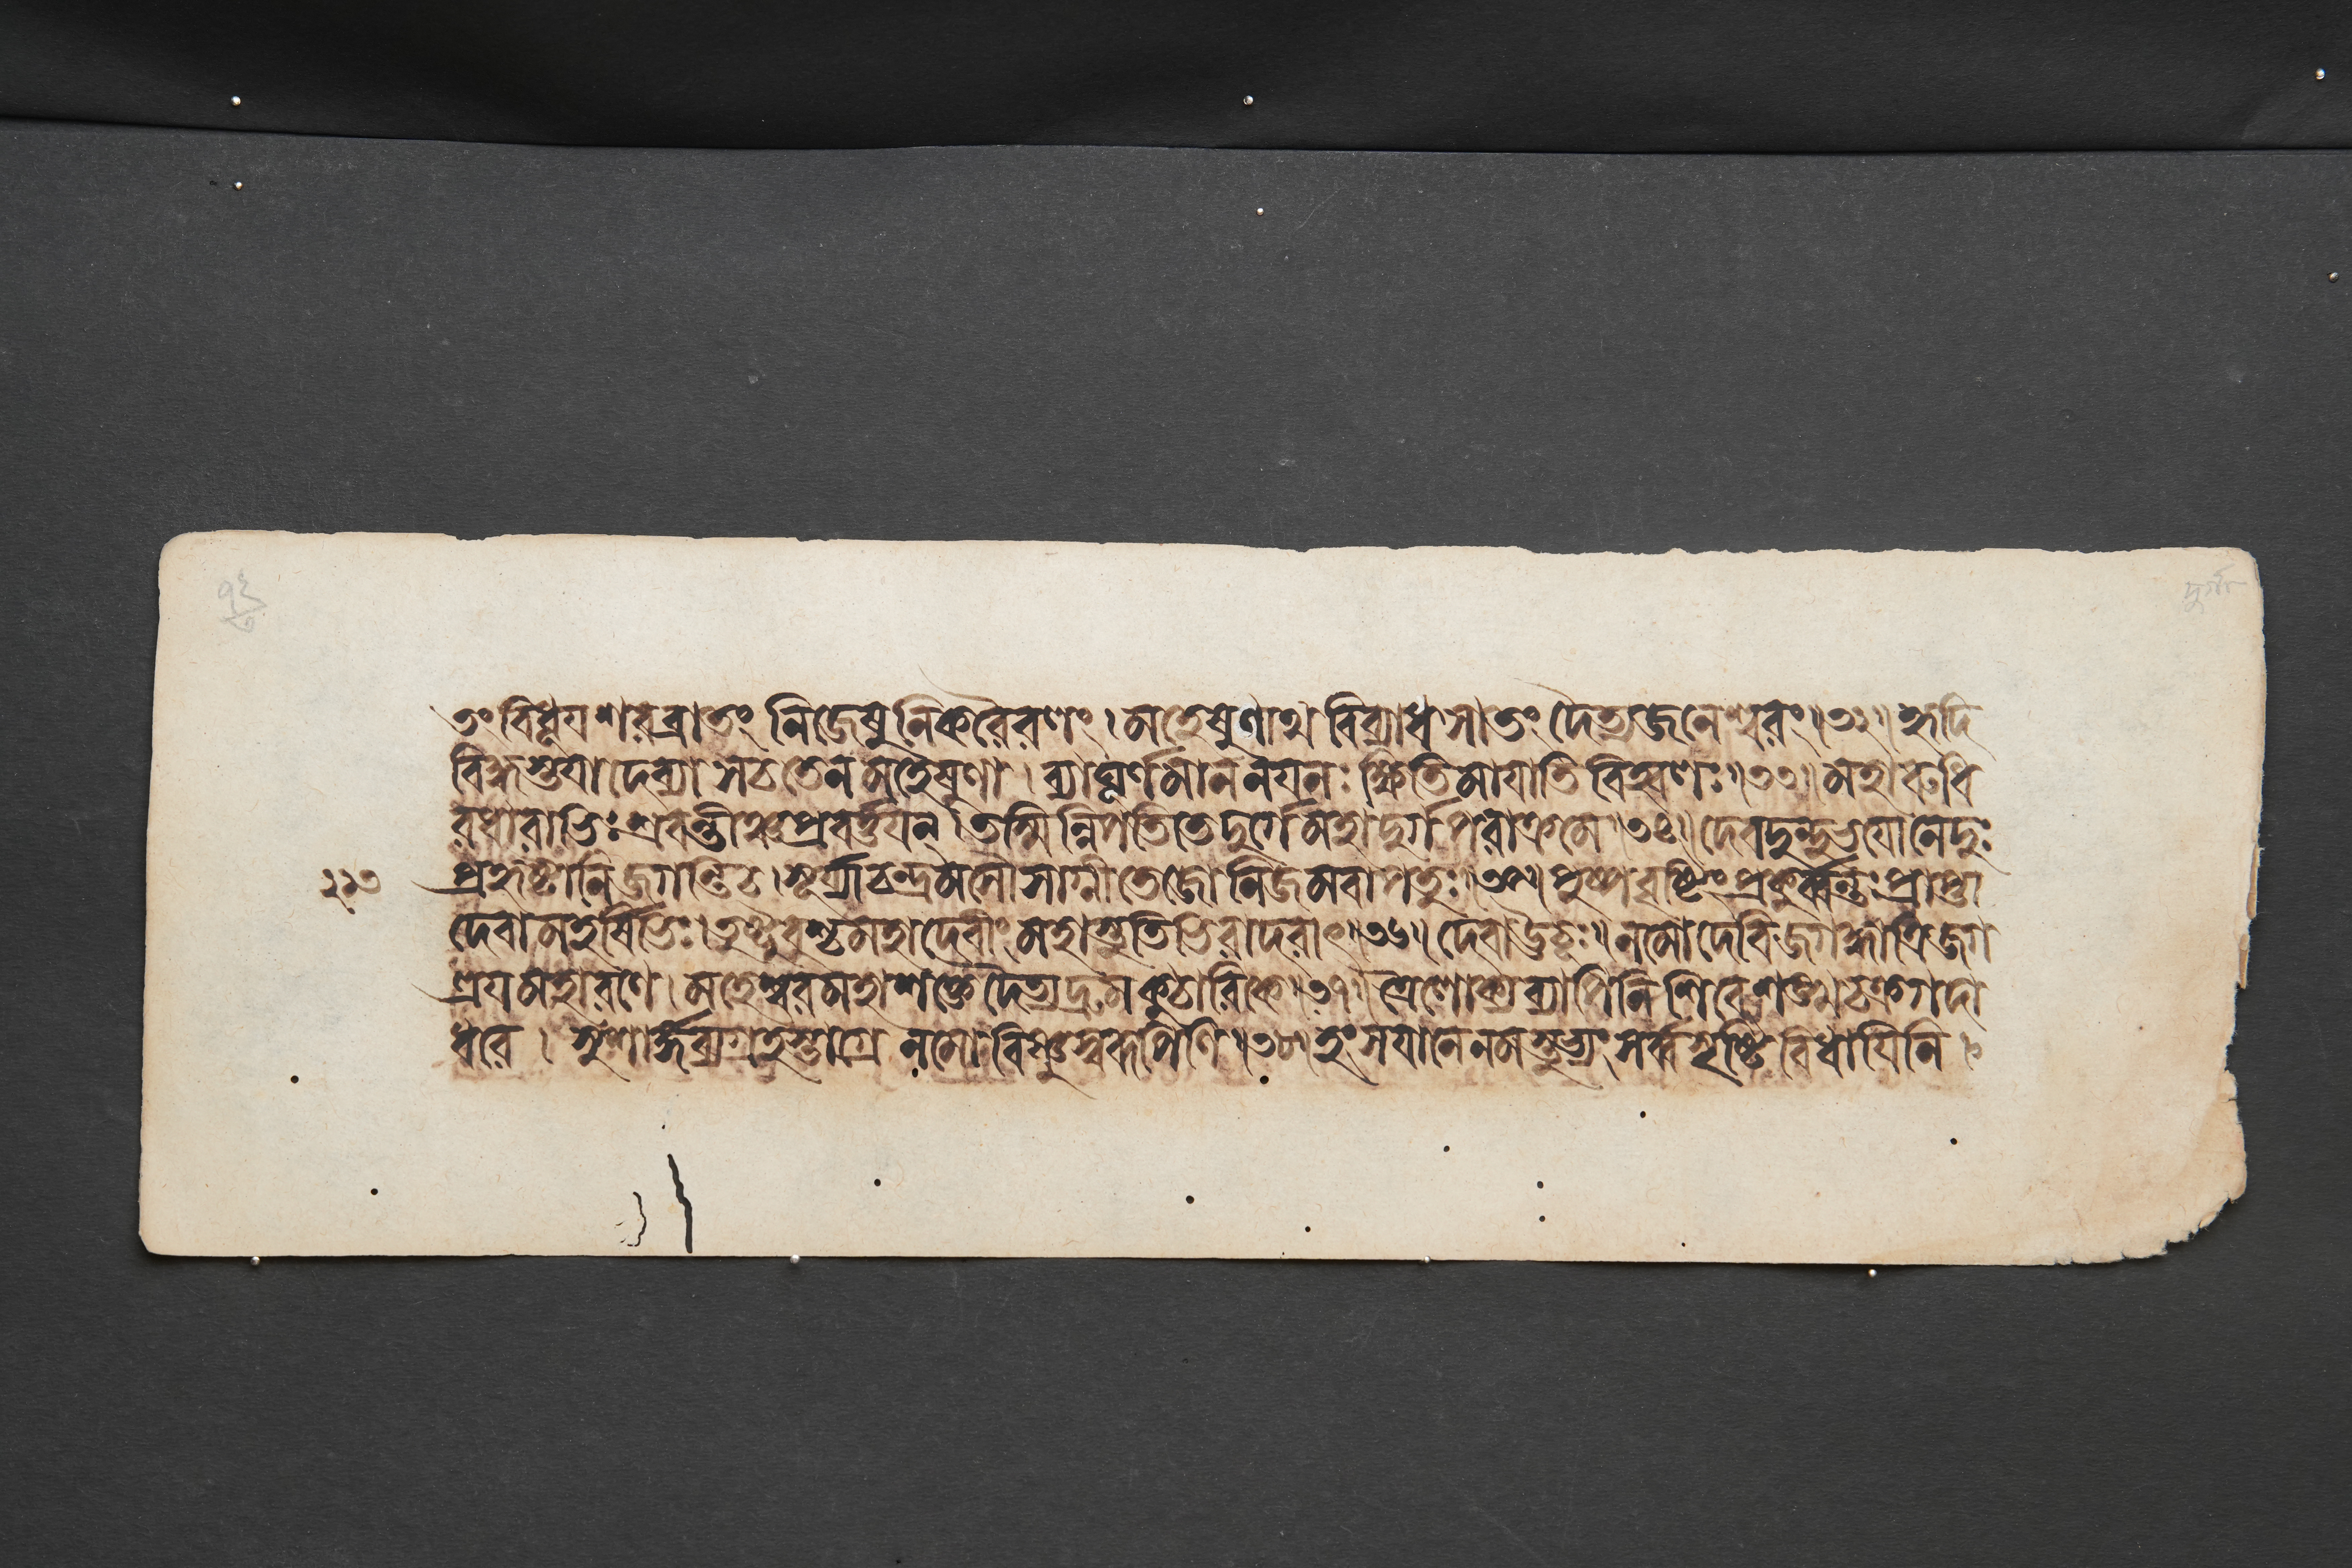 তং বিধূয শরব্রাতং নিজেষুনিকরৈরণং । মহেষুণাথ বিব্যাধ সা তং দৈত্যজনেশ্বরং ॥ ৩২ ॥ হৃদি
বিদ্ধস্তযা দেব্যা স চ তেন মহেষুণা । ব্যাঘূর্ণমাননযনঃ ক্ষিতিমাযাতি বিহ্বলঃ ॥ ৩৩ ॥ মহারুধি
রধারাভিঃ স্রবন্তীঞ্চ প্রবর্ত্তযন্ । তস্মিন্নিপতিতে দুর্গে মহাদুর্গপরাক্রমে ॥ ৩৪ ॥ দেবদুন্দুভযো নেদুঃ
প্রহৃষ্টানি জগন্তি চ । সূর্য্যাচন্দ্রমসৌ সাগ্নী তেজো নিজমবাপতুঃ ॥ ৩৫ ॥ পুষ্পবৃষ্টিং প্রকুর্ব্বন্তঃ প্রাপ্তা
২১৩
দেবা মহর্ষিভিঃ । তুষ্টুবুশ্চ মহাদেবীং মহাস্তুতিভিরাদরাৎ ॥ ৩৬ ॥ দেবা ঊচুঃ ॥ নমো দেবি জগদ্ধাত্রি জগ
ত্রযমহারণে । মহেশ্বরমহাশক্তে দৈত্যদ্রুমকুঠারিকে ॥ ৩৭ ॥ ত্রৈলোক্যব্যাপিনি শিবে শঙ্খচক্রগদা
ধরে । সুশার্ঙ্গব্যগ্রহস্তাগ্রে নমো বিষ্ণুস্বরূপিণি ॥ ৩৮ ॥ হংসযানে নমস্তুভ্যং সর্ব্বসৃষ্টিবিধাযিনি ।